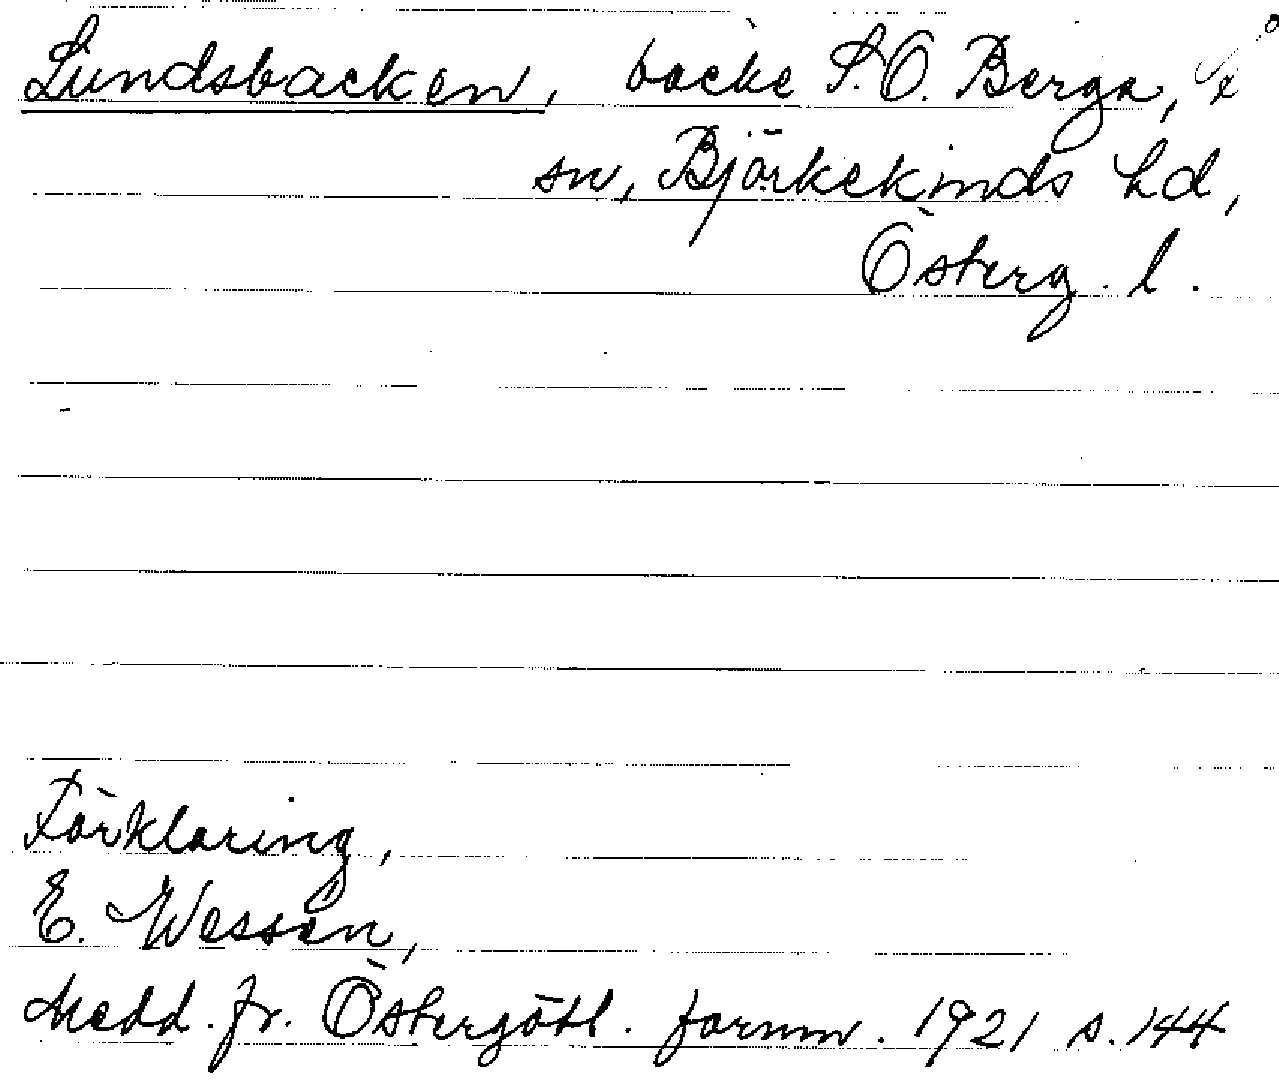 Lundsbacken, backe S.O. Berga,
sn, Björkekinds hd,
Österg. l.
Förklaring,
E. Wessén,
Medd. fr. Östergötl. fornm. 1921 s. 144